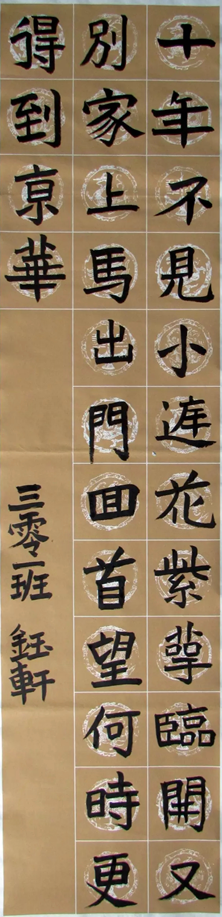 十年不見小庭花紫萼臨開又
別家上馬出門回首望何時更
得到京華
三零一班 鈺軒